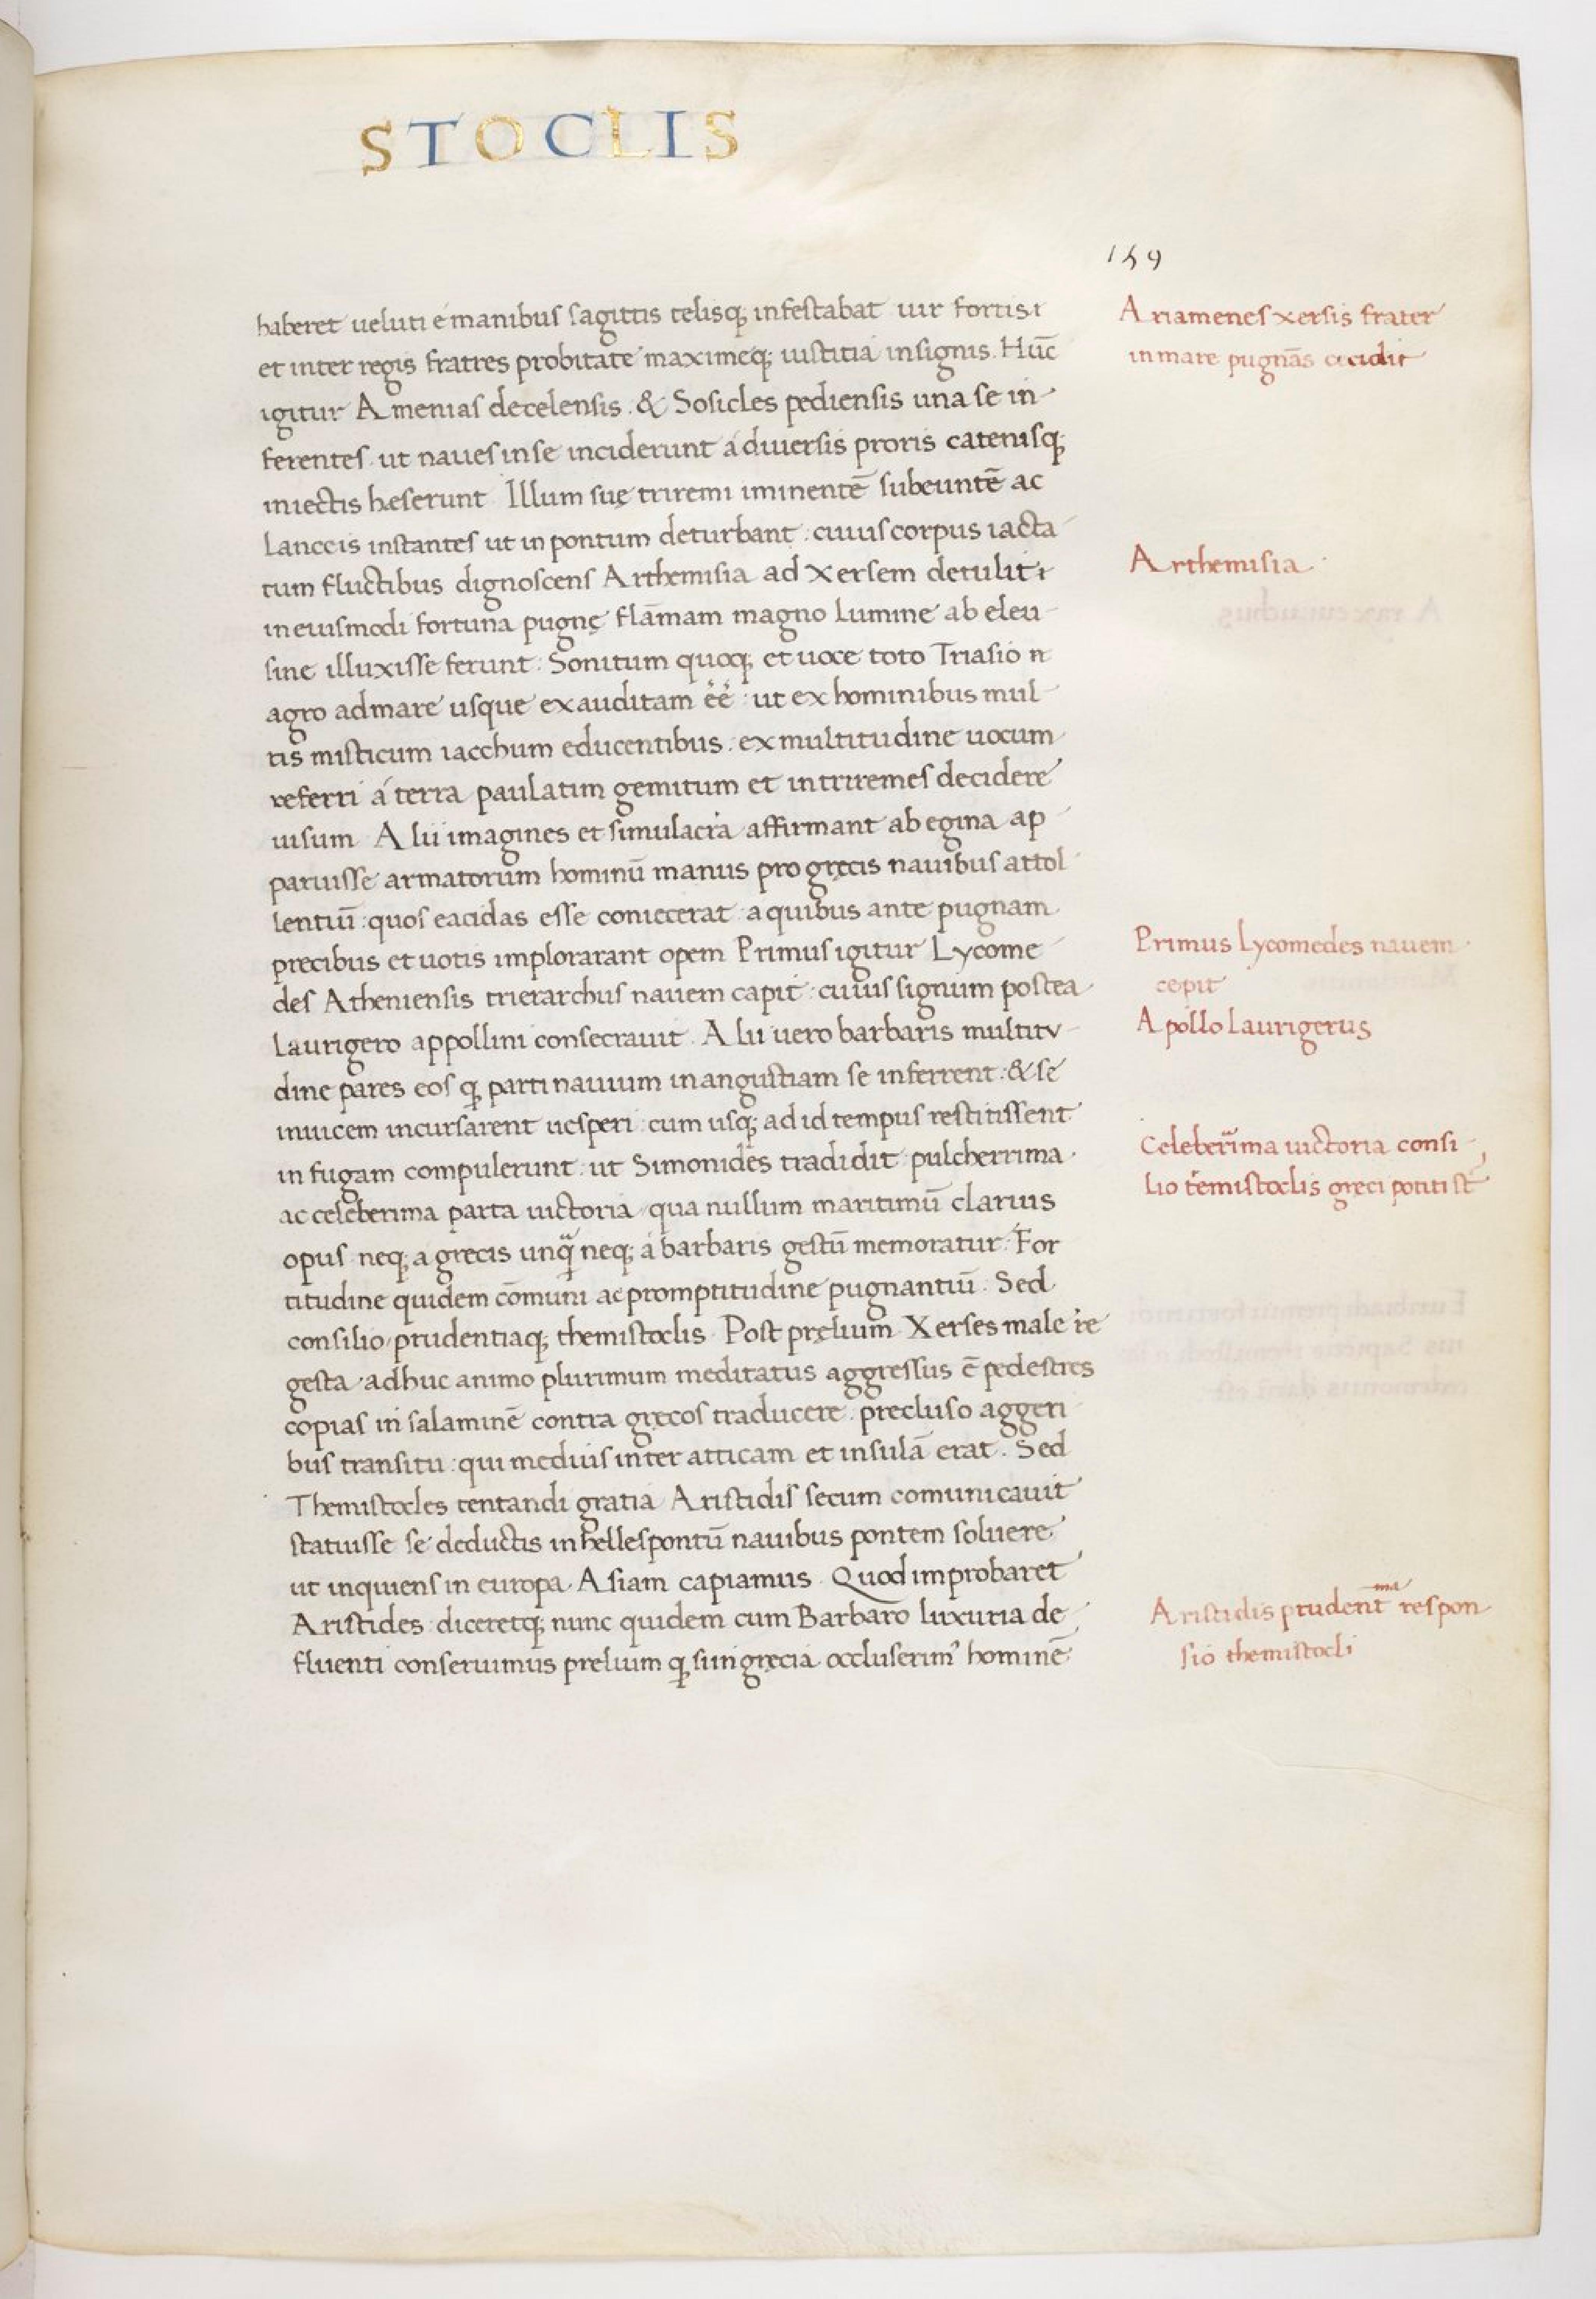 STOCLIS
159
haberet ueluti é manibus sagittis telisq; infestabat uir fortis
et inter regis fratres probitate maximeq; iustitia insignis. Hūc
igitur Amenias decelensis. & Sosicles pediensis una se in
ferentes. ut naues in se inciderunt á diuersis proris catenisq;
iniectis hæserunt Illum suę triremi iminentē subeuntē ac
Lanceis instantes ut in pontum deturbant: cuius corpus iacta
tum fluctibus dignoscens Arthemisia ad Xersem detulit
in eiusmodi fortuna pugnę flāmam magno Lumine ab eleu
sine illuxisse ferunt: Sonitum quoq; et uoce toto Triasio
agro ad mare usque exauditam éé: ut ex hominibus mul
tis misticum iacchum educentibus: ex multitudine uocum
referri á terra paulatim gemitum et in triremes decidere
uisum Alii imagines et simulacra affirmant ab egina ap
paruisse armatorum hominū manus pro gręcis nauibus attol
lentiū: quos eacidas esse coniecerat a quibus ante pugnam
precibus et uotis implorarant opem Primus igitur Lycome
des Atheniensis trierarchus nauem capit: cuius signum postea
Laurigero appollini consecrauit. Alii uero barbaris multitu
dine pares eos ꝙ parti nauium in angustiam se inferrent: & se
inuicem incursarent uesperi: cum usq; ad id tempus restitissent
in fugam compulerunt: ut Simonides tradidit pulcherrima
ac celeberima parta uictoria qua nullum maritimū clarius
opus neq; a grecis unq̄ neq; á barbaris gestū memoratur: For
titudine quidem cōmuni ac promptitudine pugnantiū. Sed
consilio prudentiaq; themistoclis. Post pręlium Xerses male re
gesta adhuc animo plurimum meditatus aggressus ē pedestres
copias in salaminē contra gręcos traducere. precluso aggeri
bus transitu: qui medius inter atticam et insulā erat. Sed
Themistocles tentandi gratia Aristidis secum comunicauit
statuisse se deductis in hellespontū nauibus pontem soluere
ut inquiens in europa Asiam capiamus. Quod improbaret
Aristides: diceretq; nunc quidem cum Barbaro luxuria de
fluenti conseruimus prelium ꝙ si in gręcia occluserim' hominē
Ariamenes xersis frater
in mare pugnās cecidit
Arthemisia
Primus Lycomedes nauem
cepit
Apollo Laurigerus
Celeberrima uictoria consi
lio temistoclis greci potiti st
Aristidis prudent̄ma respon
sio themistocli